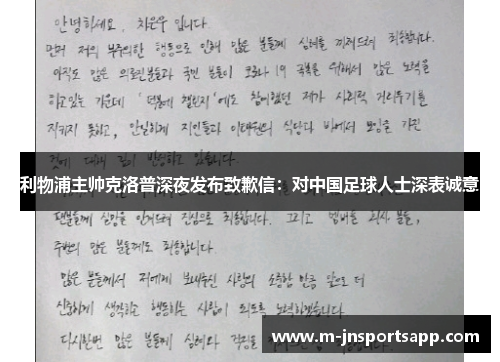 안녕하세요, 차은우 입니다.
먼저 저의 부주의한 행동으로 인해 많은 분들께 심려를 끼쳐드려 죄송합니다.
아직도 많은 의료진분들과 국민 분들이 코로나 19 극복을 위해서 많은 노력을
하고있는 가운데 '덕분에 챌린지'에도 참여했던 제가 사회적 거리두기를
지키지 못하고, 안일하게 지인들과 이태원의 식당과 바에서 모임을 가진
것에 대해 깊이 반성하고 있습니다.
利物浦主帅克洛普深夜发布致歉信：对中国足球人士深表诚意
팬분들께 실망을 안겨드려 진심으로 죄송합니다. 그리고 멤버들, 회사 분들,
주변의 많은 분들께도 죄송합니다.
많은 분들께서 저에게 보내주신 사랑의 소중함 만큼 앞으로 더
신중하게 생각하고 행동하는 사람이 되도록 노력하겠습니다.
다시한번 많은 분들께 심려와 걱정을
www.m-jnsportsapp.com